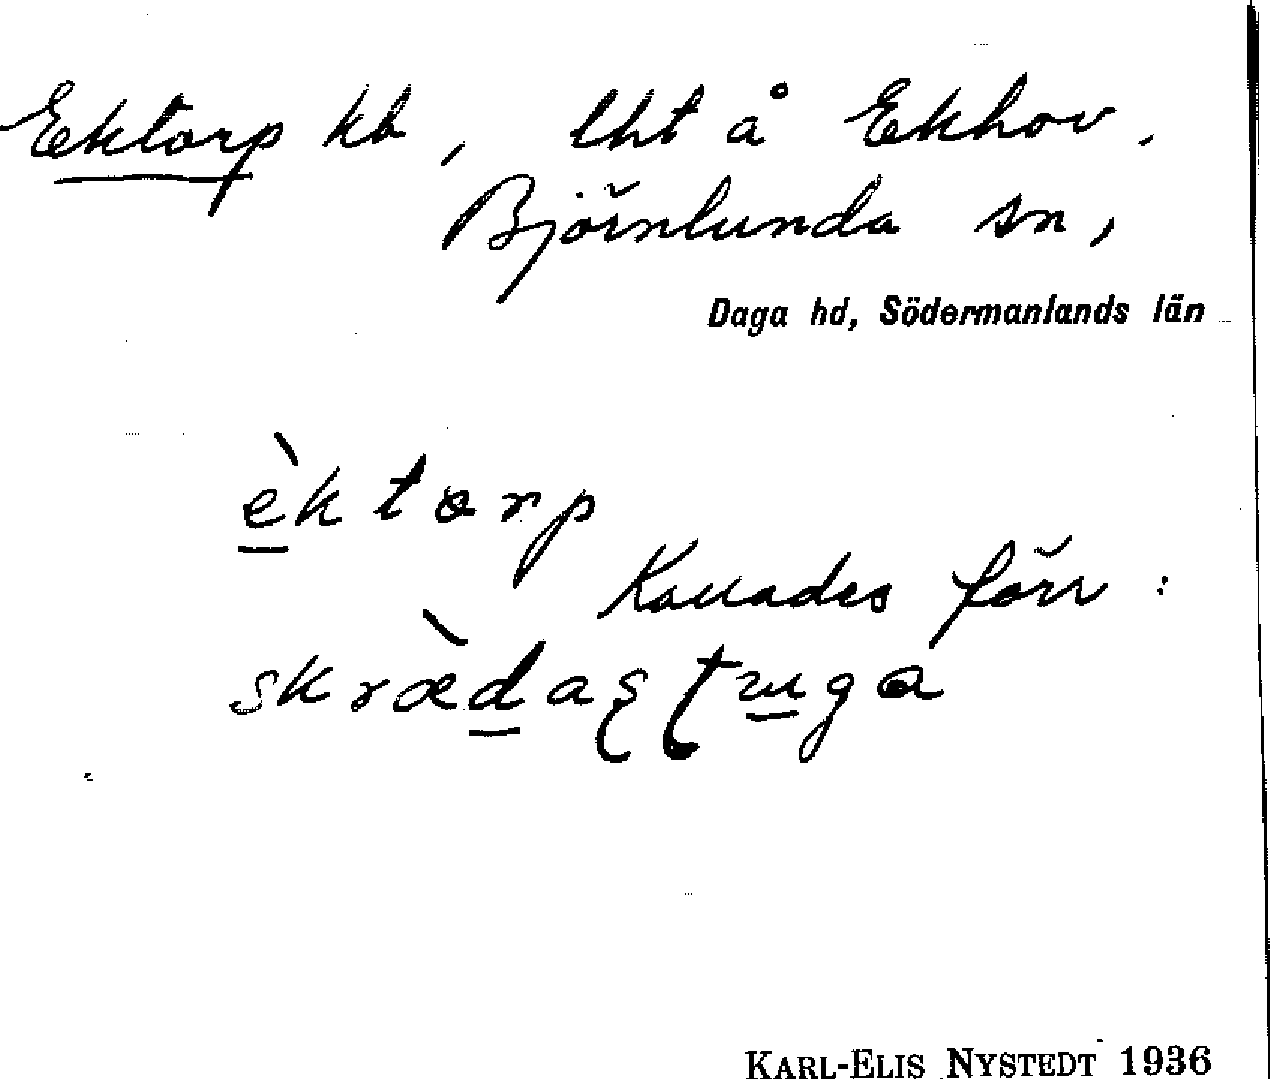 Ektorp kb, lht å Ekhov,
Björnlunda sn,
Daga hd, Södermanlands län
èktorp
Kallades förr:
skræ̀dasstuga
KARL-ELIS NYSTEDT 1936